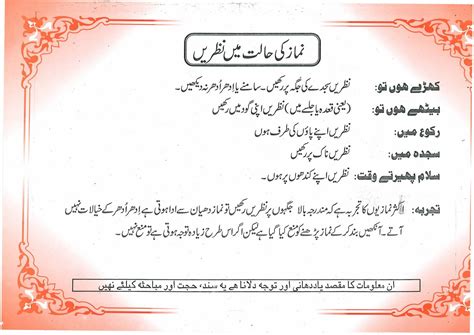 نماز کی حالت میں نظریں
کھڑے ھوں تو: نظریں سجدے کی جگہ پر رکھیں۔ سامنے یا اِدھر اُدھر نہ دیکھیں۔
بیٹھے ھوں تو: (یعنی قعدہ یا جلسے میں) نظریں اپنی گود میں رکھیں
رکوع میں: نظریں اپنے پاؤں کی طرف ہوں
سجدہ میں: نظریں ناک پر رکھیں
سلام پھیرتے وقت: نظریں اپنے کندھوں پر ہوں۔
تجربہ: اکثر نمازیوں کا تجربہ ہے کہ مندرجہ بالا جگہوں پر نظریں رکھیں تو نماز دھیان سے ادا ہوتی ہے اِدھر اُدھر کے خیالات نہیں
آتے۔ آنکھیں بند کر کے نماز پڑھنے کو منع کیا گیا ہے لیکن اگر اس طرح زیادہ توجہ ہوتی ہے تو منع نہیں۔
ان معلومات کا مقصد یاددھانی اور توجہ دلانا ھے یہ سند، حجت اور مباحثہ کیلئے نھیں